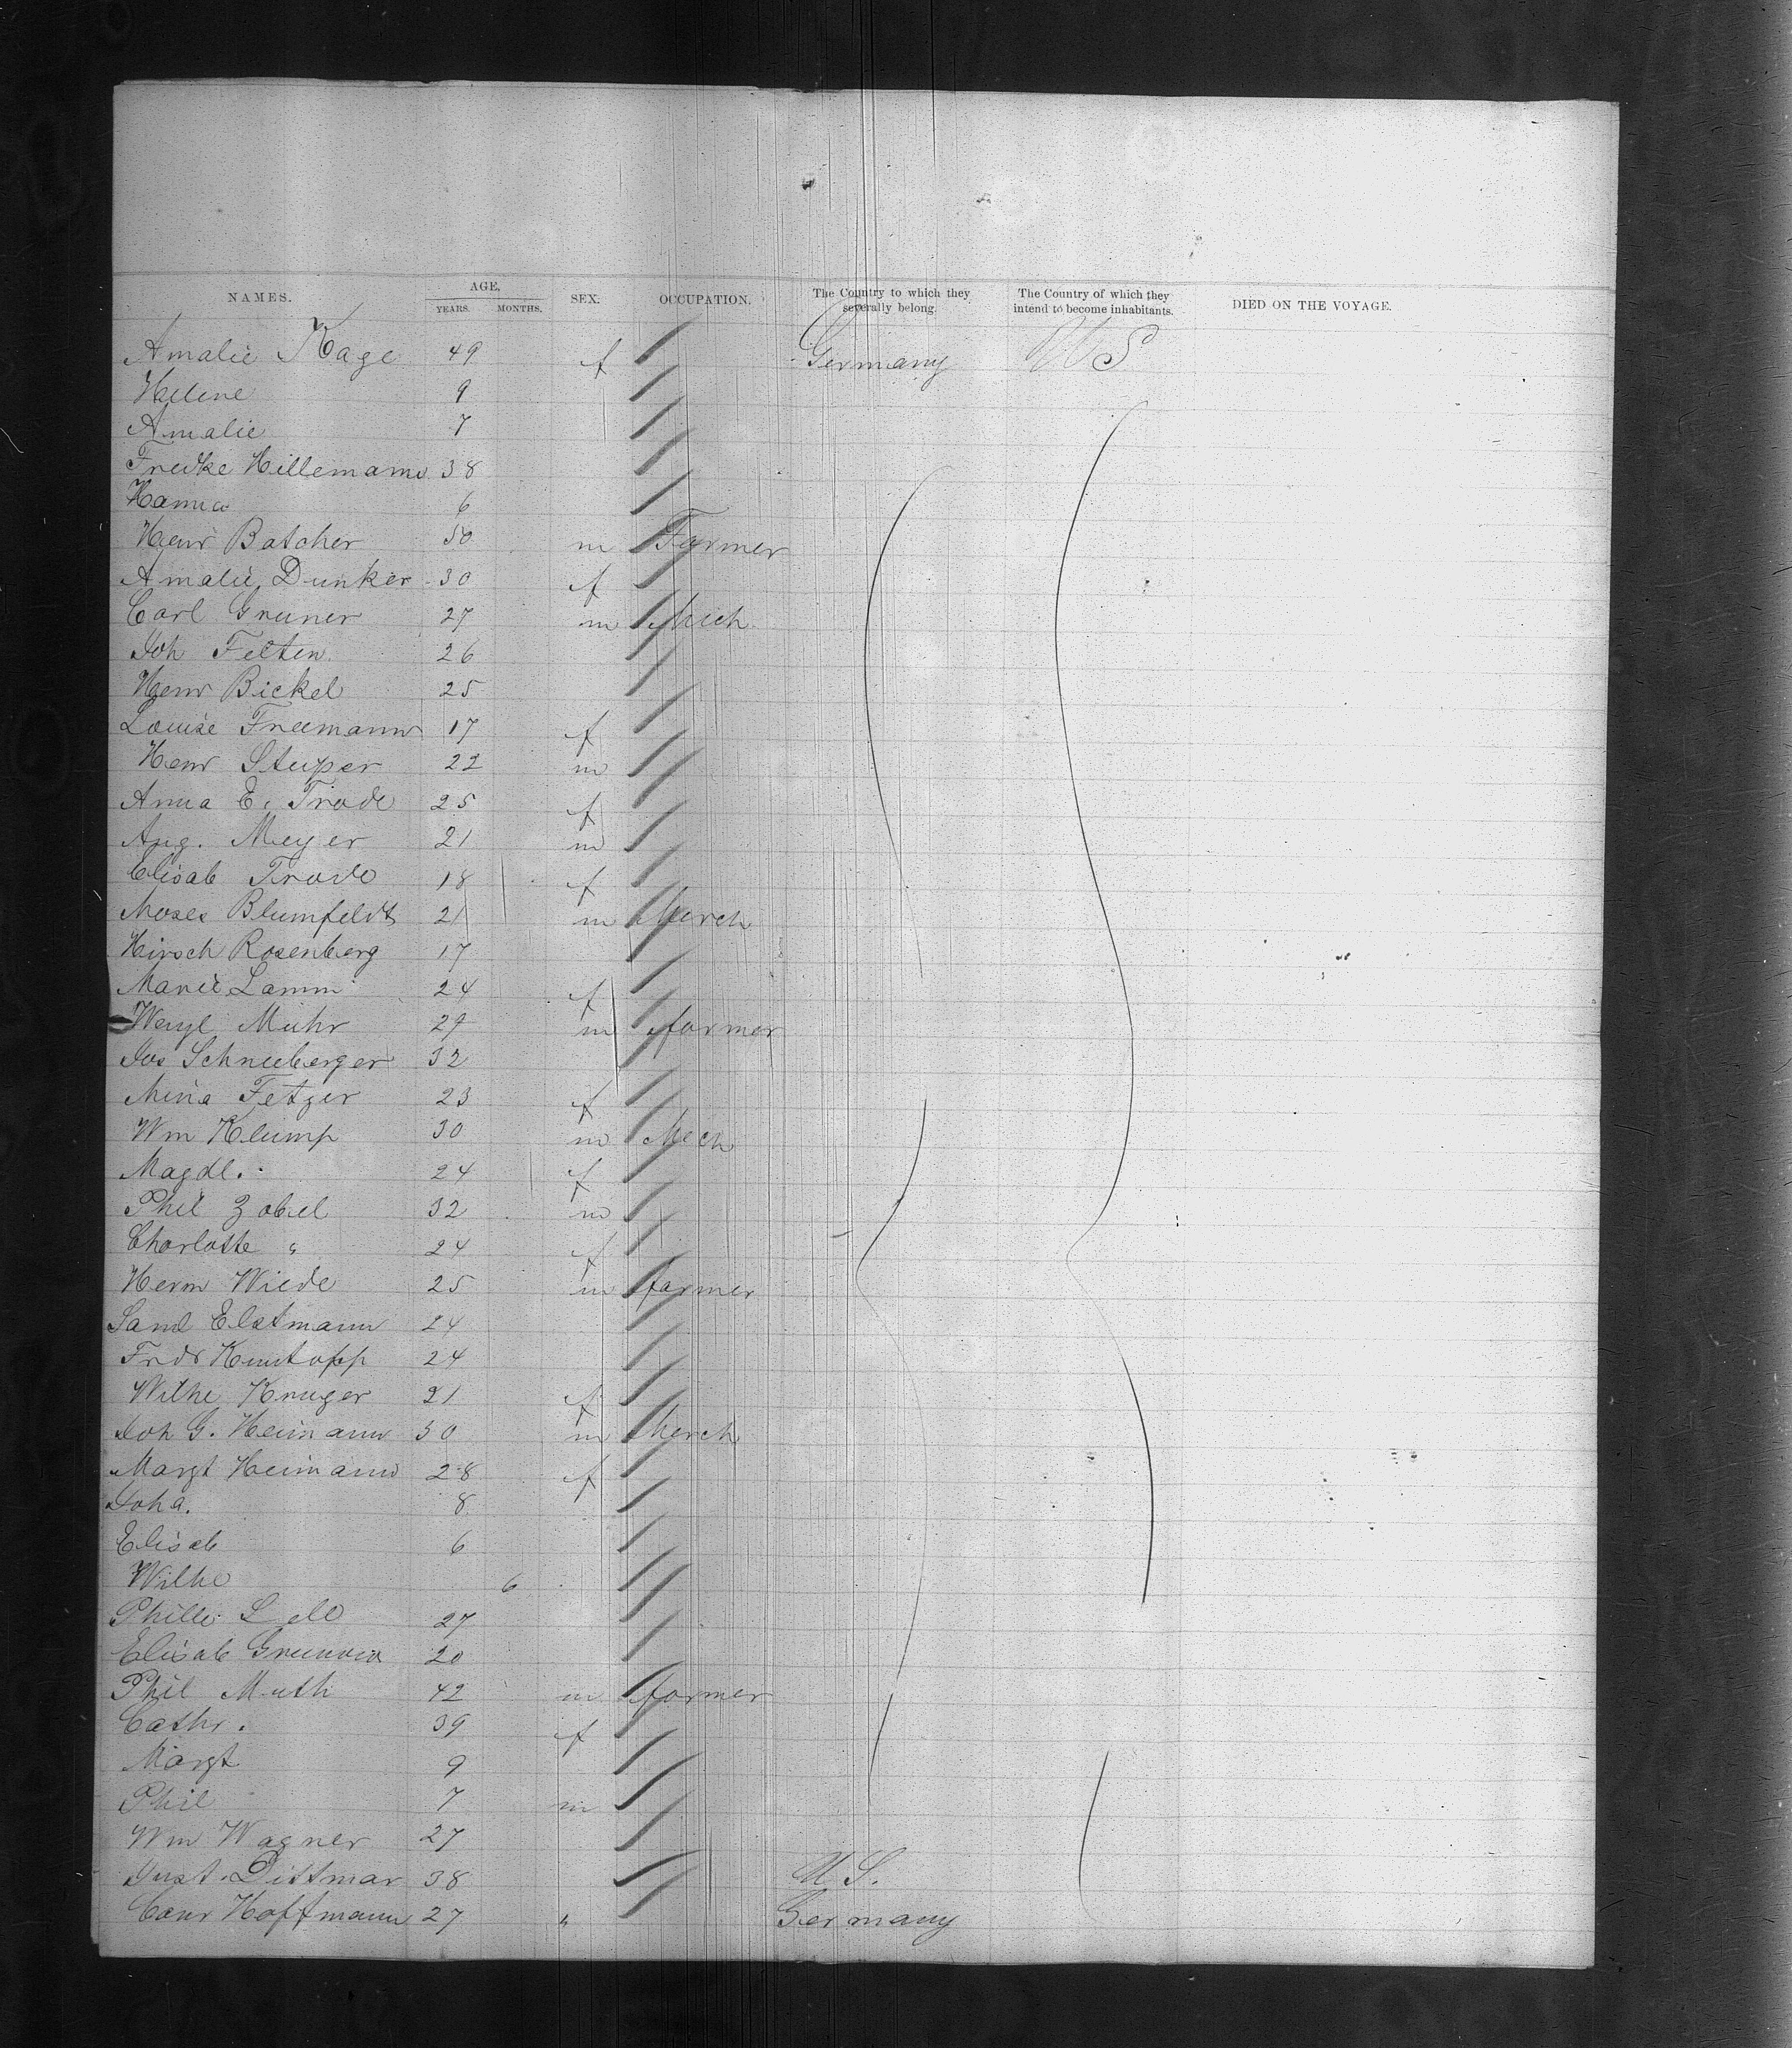 NAMES. AGE, YEARS. MONTHS. SEX. OCCUPATION. The Country to which they severally belong. The Country of which they intend to become inhabitants. DIED ON THE VOYAGE.
Amalie Kage 49 f Germany U S
Helene 9
Amalie 7
Fredke Hillemann 38
Hanna 6
Henr Botcher 50 m Farmer
Amalie Dunker 30 f
Carl Gruner 27 m Mich
Joh Felten 26
Henr Bickel 25
Louise Freemann 17 f
Henr Stuper 22 m
Anna E. Trode 25 f
Aug. Meyer 21 m
Elisab Trode 18 f
Moses Blumfeldt 21 m Merch
Hirsch Rosenberg 17
Marie Lamm 24 f
Muhr 29 m farmer
Jos Schneeberger 32
Mina Fetzer 23 f
Wm Klump 30 m Mech
Magdl. 24 f
Phil Zobel 32 m
Charlotte " 24 f
Herm Wiede 25 m farmer
Saml Elstmann 24
Fridr 24
Wilhe Kruger 21 f
Joh G. Heimann 30 m Merch
Margt Heimann 28 f
Joha. 8
Elisab 6
Wilhe 6
27
Elisab 20
Phil Muth 42 m farmer
Cathr. 39 f
Margt 9
Phil 7 m
Wm Wagner 27
Gust. Dittmar 38 U S.
Conr Hoffmann 27 " Germany